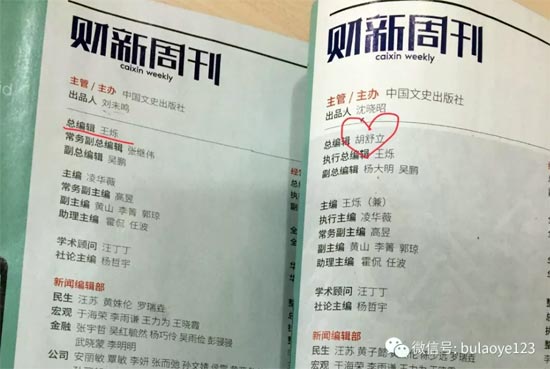 财新周刊
caixin weekly
主管/主办 中国文史出版社
出品人 刘未鸣
总编辑 王烁
常务副总编辑 张继伟
副总编辑 吴鹏
主编 凌华薇
常务副主编 高昱
副主编 黄山 李箐 郭琼
助理主编 霍侃 任波
学术顾问 汪丁丁
社论主编 杨哲宇
新闻编辑部
民生 汪苏 黄姝伦 罗瑞垚
宏观 于海荣 李雨谦 王力为 王晓霞
金融 张宇哲 吴红毓然 杨巧伶 吴雨俭 彭骎骎
武晓蒙 李明明
公司 安丽敏 覃敏 李妍 张而弛 孙文婧
财新周刊
caixin weekly
主管/主办 中国文史出版社
出品人 沈晓昭
总编辑 胡舒立
执行总编辑 王烁
副总编辑 杨大明 吴鹏
主编 王烁(兼)
执行主编 凌华薇
常务副主编 高昱
副主编 黄山 李箐 郭琼
助理主编 霍侃 任波
学术顾问 汪丁丁
社论主编 杨哲宇
新闻编辑部
民生 汪苏 黄子懿
宏观 于海荣 李雨谦 王力为
微信号: bulaoye123